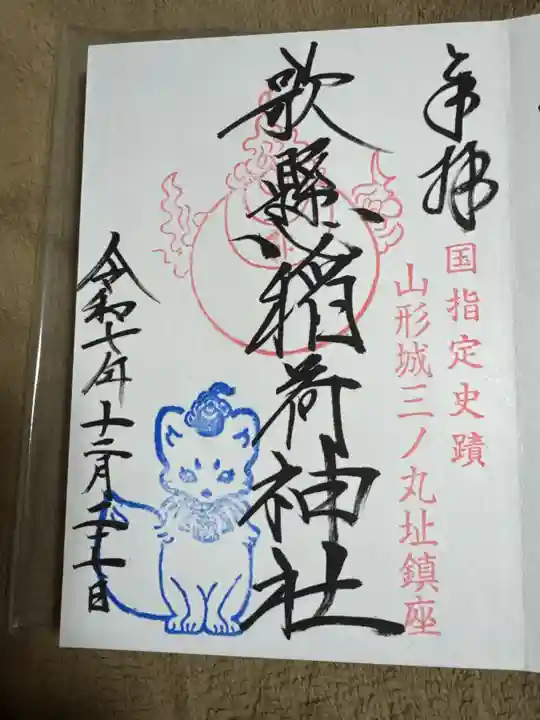 奉拝
国指定史蹟
山形城三ノ丸址鎮座
歌懸稲荷神社
令和七年十二月二十一日